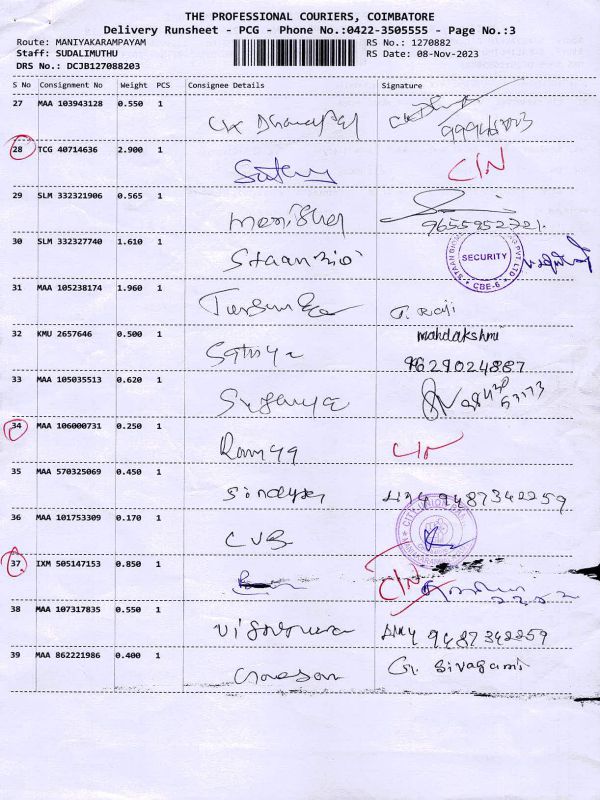 THE PROFESSIONAL COURIERS, COIMBATORE
Delivery Runsheet - PCG - Phone No.:0422-3505555 - Page No.:3
Route: MANIYAKARAMPAYAM RS No.: 1270882
Staff: SUDALIMUTHU RS Date: 08-Nov-2023
DRS No.: DCJB127088203
S No Consignment No Weight PCS Consignee Details Signature
27 MAA 103943128 0.550 1
28 TCG 40714636 2.900 1 CIN
29 SLM 332321906 0.565 1 9655952321.
30 SLM 332327740 1.610 1 SECURITY CBE-6
31 MAA 105238174 1.960 1
32 KMU 2657646 0.500 1 Sathya mahdakshmi
9629024887
33 MAA 105035513 0.620 1 Suganya
34 MAA 106000731 0.250 1 Ramya
35 MAA 570325069 0.450 1 9487342259.
36 MAA 101753309 0.170 1 CUB CITY UNION BANK
37 IXM 505147153 0.850 1 CIN
38 MAA 107317835 0.550 1 9487342259
39 MAA 862221986 0.400 1 G. Sivagami